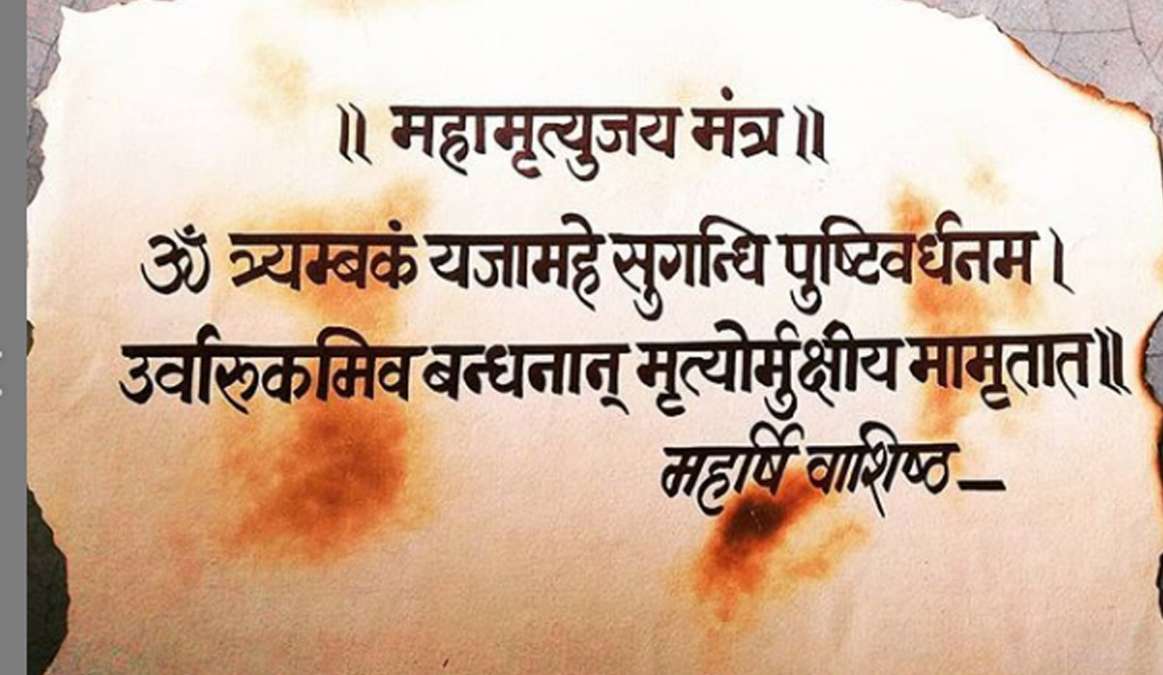 ॥ महामृत्युजय मंत्र ॥
ॐ त्र्यम्बकं यजामहे सुगन्धि पुष्टिवर्धनम ।
उर्वारूकमिव बन्धनान् मृत्योर्मुक्षीय मामृतात ॥
महार्षि वाशिष्ठ —